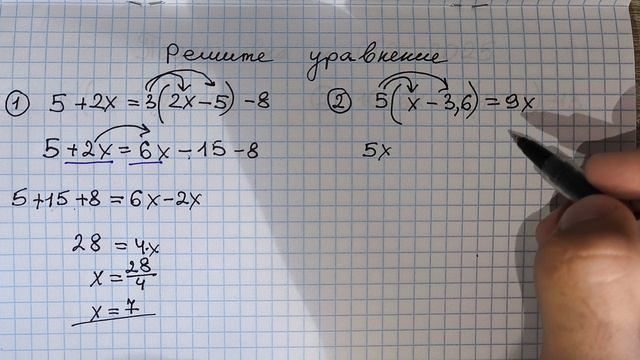 Решите уравнение
① 5 + 2x = 3(2x - 5) - 8
5 + 2x = 6x - 15 - 8
5 + 15 + 8 = 6x - 2x
28 = 4·x
x = 28/4
x = 7
② 5(x - 3,6) = 9x
5x